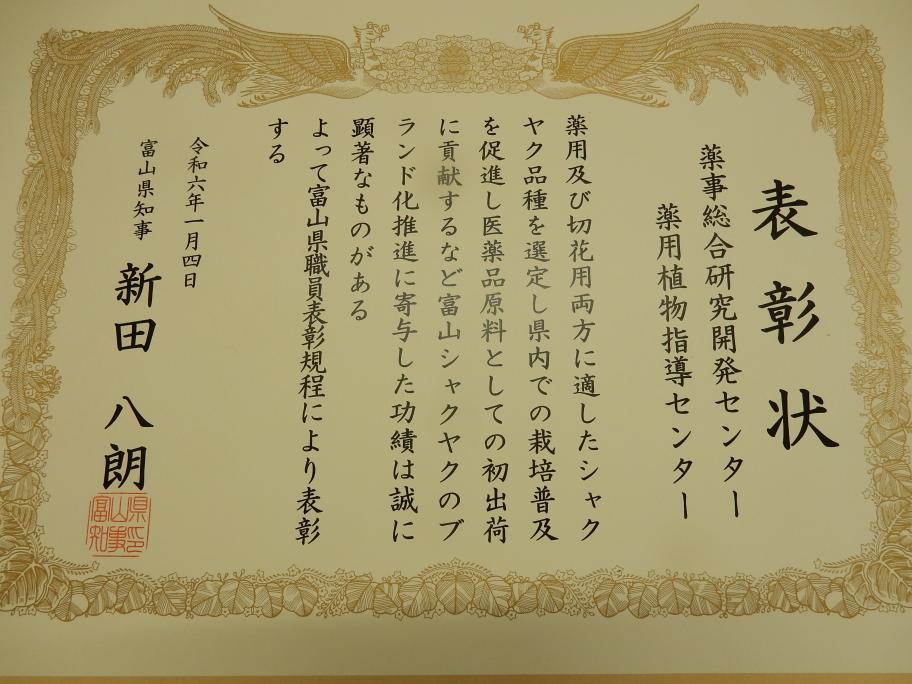 表彰状
薬事総合研究開発センター
薬用植物指導センター
薬用及び切花用両方に適したシャク
ヤク品種を選定し県内での栽培普及
を促進し医薬品原料としての初出荷
に貢献するなど富山シャクヤクのブ
ランド化推進に寄与した功績は誠に
顕著なものがある
よって富山県職員表彰規程により表彰
する
令和六年一月四日
富山県知事 新田八朗
富山県知事印